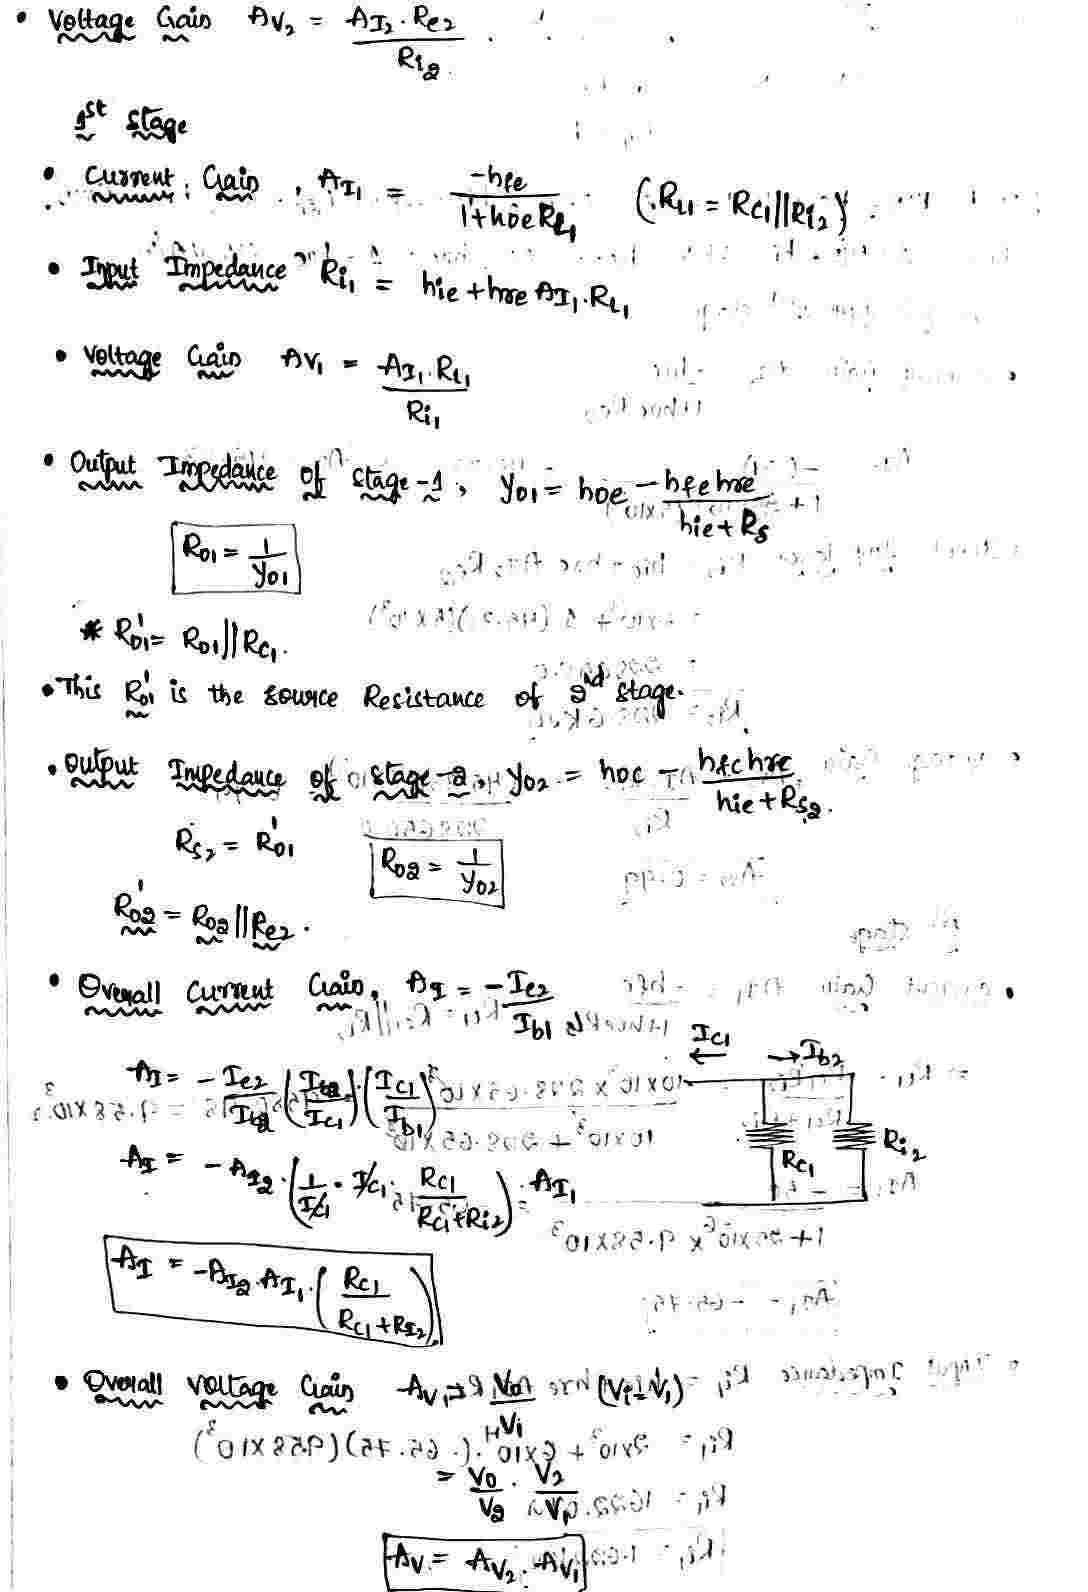 • Voltage Gain A_V2 = A_I2 . R_e2 / R_i2
1st Stage
• Current Gain, A_I1 = -hfe / 1+hoe R_L1 (∵ R_L1 = R_C1 || R_i2)
• Input Impedance R_i1 = hie + hre A_I1 . R_L1
• Voltage Gain A_V1 = A_I1 . R_L1 / R_i1
• Output Impedance of Stage-1, Y_01 = hoe - hfe hre / hie + R_s
R_01 = 1 / Y_01
* R_01' = R_01 || R_C1.
• This R_01' is the source Resistance of 2nd stage.
• Output Impedance of stage-2, Y_02 = hoc - hfc hrc / hie + R_s2.
R_s2 = R_01' R_02 = 1 / Y_02
R_02' = R_02 || R_e2.
• Overall Current Gain, A_I = - I_e2 / I_b1
I_C1 I_b2
A_I = - I_e2 / I_b2 (I_b2 / I_C1) . (I_C1 / I_b1)
R_C1 R_i2
A_I = - A_I2 . (1 / I_C1 . I_C1 . R_C1 / R_C1 + R_i2) . A_I1
A_I = - A_I2 . A_I1 . (R_C1 / R_C1 + R_I2)
• Overall voltage Gain A_V = V_0 / V_i (V_i = V_1)
= V_0 / V_2 . V_2 / V_1
A_V = A_V2 . A_V1